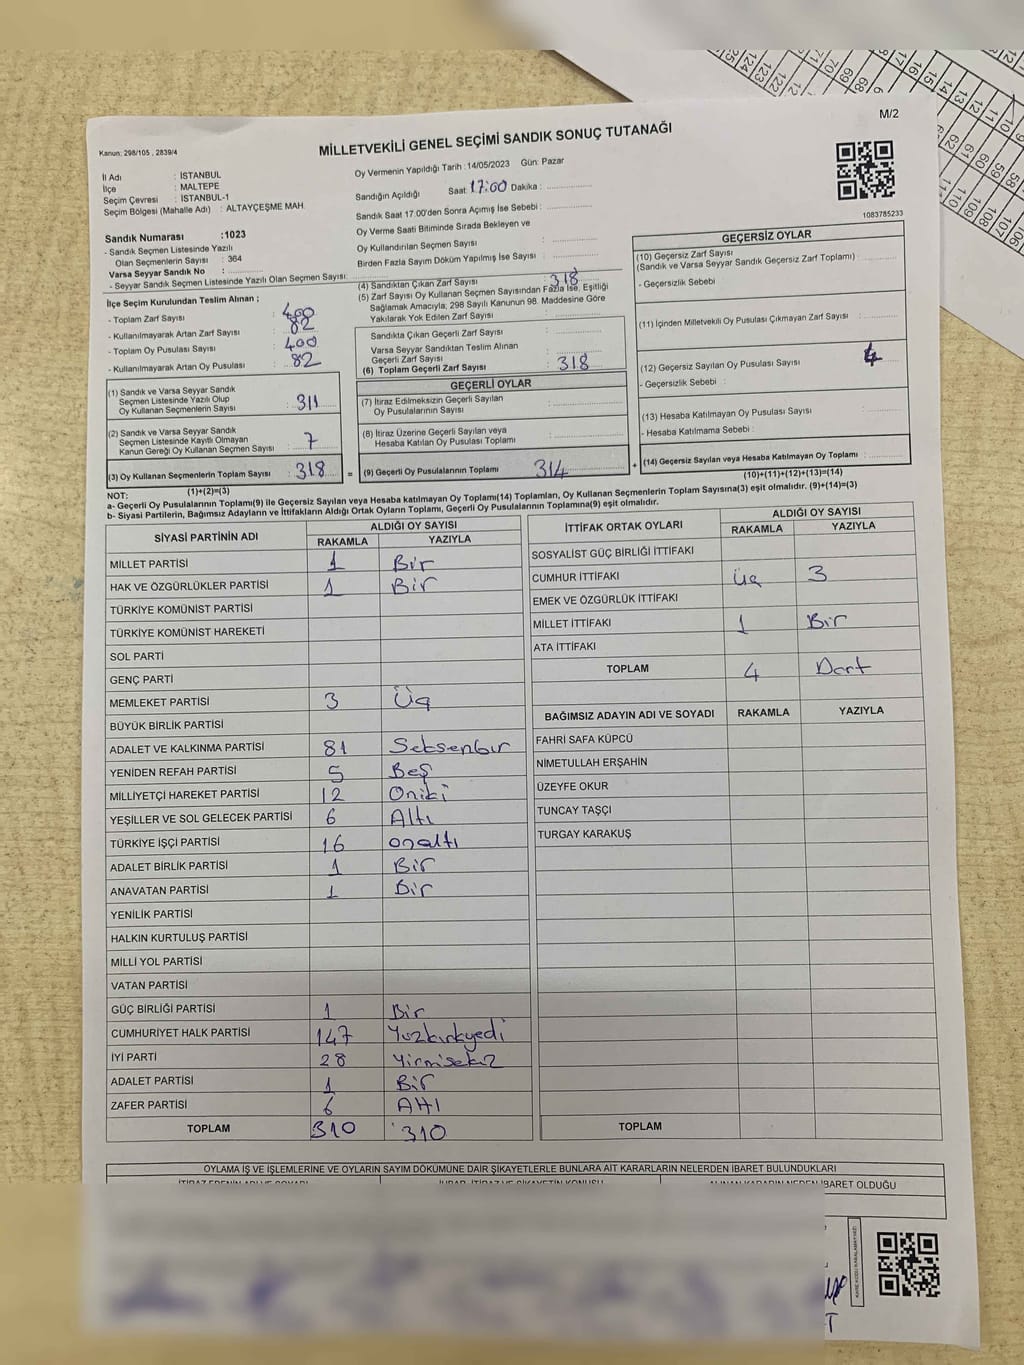 M/2
Kanun: 298/105 , 2839/4
MİLLETVEKİLİ GENEL SEÇİMİ SANDIK SONUÇ TUTANAĞI
İl Adı : İSTANBUL
İlçe : MALTEPE
Seçim Çevresi : İSTANBUL-1
Seçim Bölgesi (Mahalle Adı) : ALTAYÇEŞME MAH.
Sandık Numarası :1023
- Sandık Seçmen Listesinde Yazılı
Olan Seçmenlerin Sayısı : 364
Varsa Seyyar Sandık No :
- Seyyar Seçmen Listesinde Yazılı Olan Seçmen Sayısı:
Oy Vermenin Yapıldığı Tarih : 14/05/2023 Gün: Pazar
Sandığın Açıldığı Saat: 17:00 Dakika :
Sandık Saat 17.00'den Sonra Açımış İse Sebebi :
Oy Verme Saati Bitiminde Sırada Bekleyen ve
Oy Kullandırılan Seçmen Sayısı :
Birden Fazla Sayım Döküm Yapılmış İse Sayısı :
1083785233
İlçe Seçim Kurulundan Teslim Alınan ;
- Toplam Zarf Sayısı : 400
- Kullanılmayarak Artan Zarf Sayısı : 82
- Toplam Oy Pusulası Sayısı : 400
- Kullanılmayarak Artan Oy Pusulası : 82
(1) Sandık ve Varsa Seyyar Sandık
Seçmen Listesinde Yazılı Olup
Oy Kullanan Seçmenlerin Sayısı : 311
(2) Sandık ve Varsa Seyyar Sandık
Seçmen Listesinde Kayıtlı Olmayan
Kanun Gereği Oy Kullanan Seçmen Sayısı : 7
(3) Oy Kullanan Seçmenlerin Toplam Sayısı : 318 =
(1)+(2)=(3)
(4) Sandıktan Çıkan Zarf Sayısı : 318
(5) Zarf Sayısı Oy Kullanan Seçmen Sayısından Fazla İse, Eşitliği
Sağlamak Amacıyla; 298 Sayılı Kanunun 98. Maddesine Göre
Yakılarak Yok Edilen Zarf Sayısı :
Sandıkta Çıkan Geçerli Zarf Sayısı :
Varsa Seyyar Sandıktan Teslim Alınan
Geçerli Zarf Sayısı :
(6) Toplam Geçerli Zarf Sayısı : 318
GEÇERLİ OYLAR
(7) İtiraz Edilmeksizin Geçerli Sayılan
Oy Pusulalarının Sayısı :
(8) İtiraz Üzerine Geçerli Sayılan veya
Hesaba Katılan Oy Pusulası Toplamı :
(9) Geçerli Oy Pusulalarının Toplamı : 314 +
GEÇERSİZ OYLAR
(10) Geçersiz Zarf Sayısı
(Sandık ve Varsa Seyyar Sandık Geçersiz Zarf Toplamı) :
- Geçersizlik Sebebi :
(11) İçinden Milletvekili Oy Pusulası Çıkmayan Zarf Sayısı :
(12) Geçersiz Sayılan Oy Pusulası Sayısı : 4
- Geçersizlik Sebebi :
(13) Hesaba Katılmayan Oy Pusulası Sayısı :
- Hesaba Katılmama Sebebi :
(14) Geçersiz Sayılan veya Hesaba Katılmayan Oy Toplamı :
(10)+(11)+(12)+(13)=(14)
NOT:
a- Geçerli Oy Pusulalarının Toplamı(9) ile Geçersiz Sayılan veya Hesaba katılmayan Oy Toplam(14) Toplamları, Oy Kullanan Seçmenlerin Toplam Sayısına(3) eşit olmalıdır. (9)+(14)=(3)
b- Siyasi Partilerin, Bağımsız Adayların ve İttifakların Aldığı Ortak Oyların Toplamı, Geçerli Oy Pusulalarının Toplamına(9) eşit olmalıdır.
SİYASİ PARTİNİN ADI ALDIĞI OY SAYISI
RAKAMLA YAZIYLA
MİLLET PARTİSİ 1 Bir
HAK VE ÖZGÜRLÜKLER PARTİSİ 1 Bir
TÜRKİYE KOMÜNİST PARTİSİ
TÜRKİYE KOMÜNİST HAREKETİ
SOL PARTİ
GENÇ PARTİ
MEMLEKET PARTİSİ 3 Üç
BÜYÜK BİRLİK PARTİSİ
ADALET VE KALKINMA PARTİSİ 81 Seksenbir
YENİDEN REFAH PARTİSİ 5 Beş
MİLLİYETÇİ HAREKET PARTİSİ 12 Oniki
YEŞİLLER VE SOL GELECEK PARTİSİ 6 Altı
TÜRKİYE İŞÇİ PARTİSİ 16 onaltı
ADALET BİRLİK PARTİSİ 1 Bir
ANAVATAN PARTİSİ 1 Bir
YENİLİK PARTİSİ
HALKIN KURTULUŞ PARTİSİ
MİLLİ YOL PARTİSİ
VATAN PARTİSİ
GÜÇ BİRLİĞİ PARTİSİ 1 Bir
CUMHURİYET HALK PARTİSİ 147 Yüzkırkyedi
İYİ PARTİ 28 Yirmisekiz
ADALET PARTİSİ 1 Bir
ZAFER PARTİSİ 6 Altı
TOPLAM 310 310
İTTİFAK ORTAK OYLARI ALDIĞI OY SAYISI
RAKAMLA YAZIYLA
SOSYALİST GÜÇ BİRLİĞİ İTTİFAKI
CUMHUR İTTİFAKI üç 3
EMEK VE ÖZGÜRLÜK İTTİFAKI
MİLLET İTTİFAKI 1 Bir
ATA İTTİFAKI
TOPLAM 4 Dört
BAĞIMSIZ ADAYIN ADI VE SOYADI RAKAMLA YAZIYLA
FAHRİ SAFA KÜPCÜ
NİMETULLAH ERŞAHİN
ÜZEYFE OKUR
TUNCAY TAŞÇI
TURGAY KARAKUŞ
TOPLAM
OYLAMA İŞ VE İŞLEMLERİNE VE OYLARIN SAYIM DÖKÜMÜNE DAİR ŞİKAYETLERLE BUNLARA AİT KARARLARIN NELERDEN İBARET BULUNDUKLARI
İBARET OLDUĞU